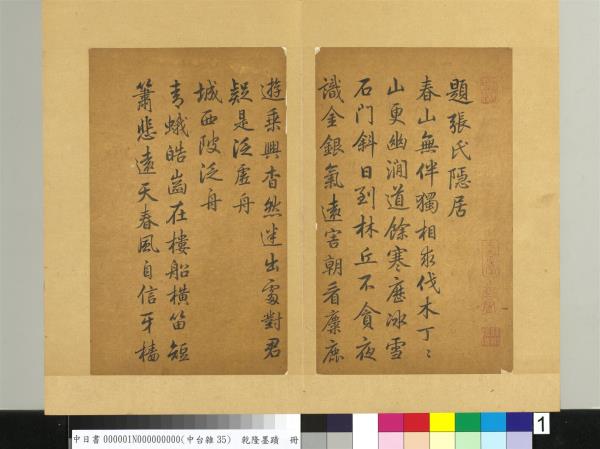 題張氏隱居
春山無伴獨相求伐木丁〻
山更幽澗道餘寒歷冰雪
石門斜日到林丘不貪夜
識金銀氣遠害朝看麋鹿
遊乘興杳然迷出處對君
疑是泛虛舟
城西陂泛舟
青蛾皓齒在樓船橫笛短
簫悲遠天春風自信牙檣
中日書 000001N000000000(中台雜35) 乾隆墨蹟 冊
1